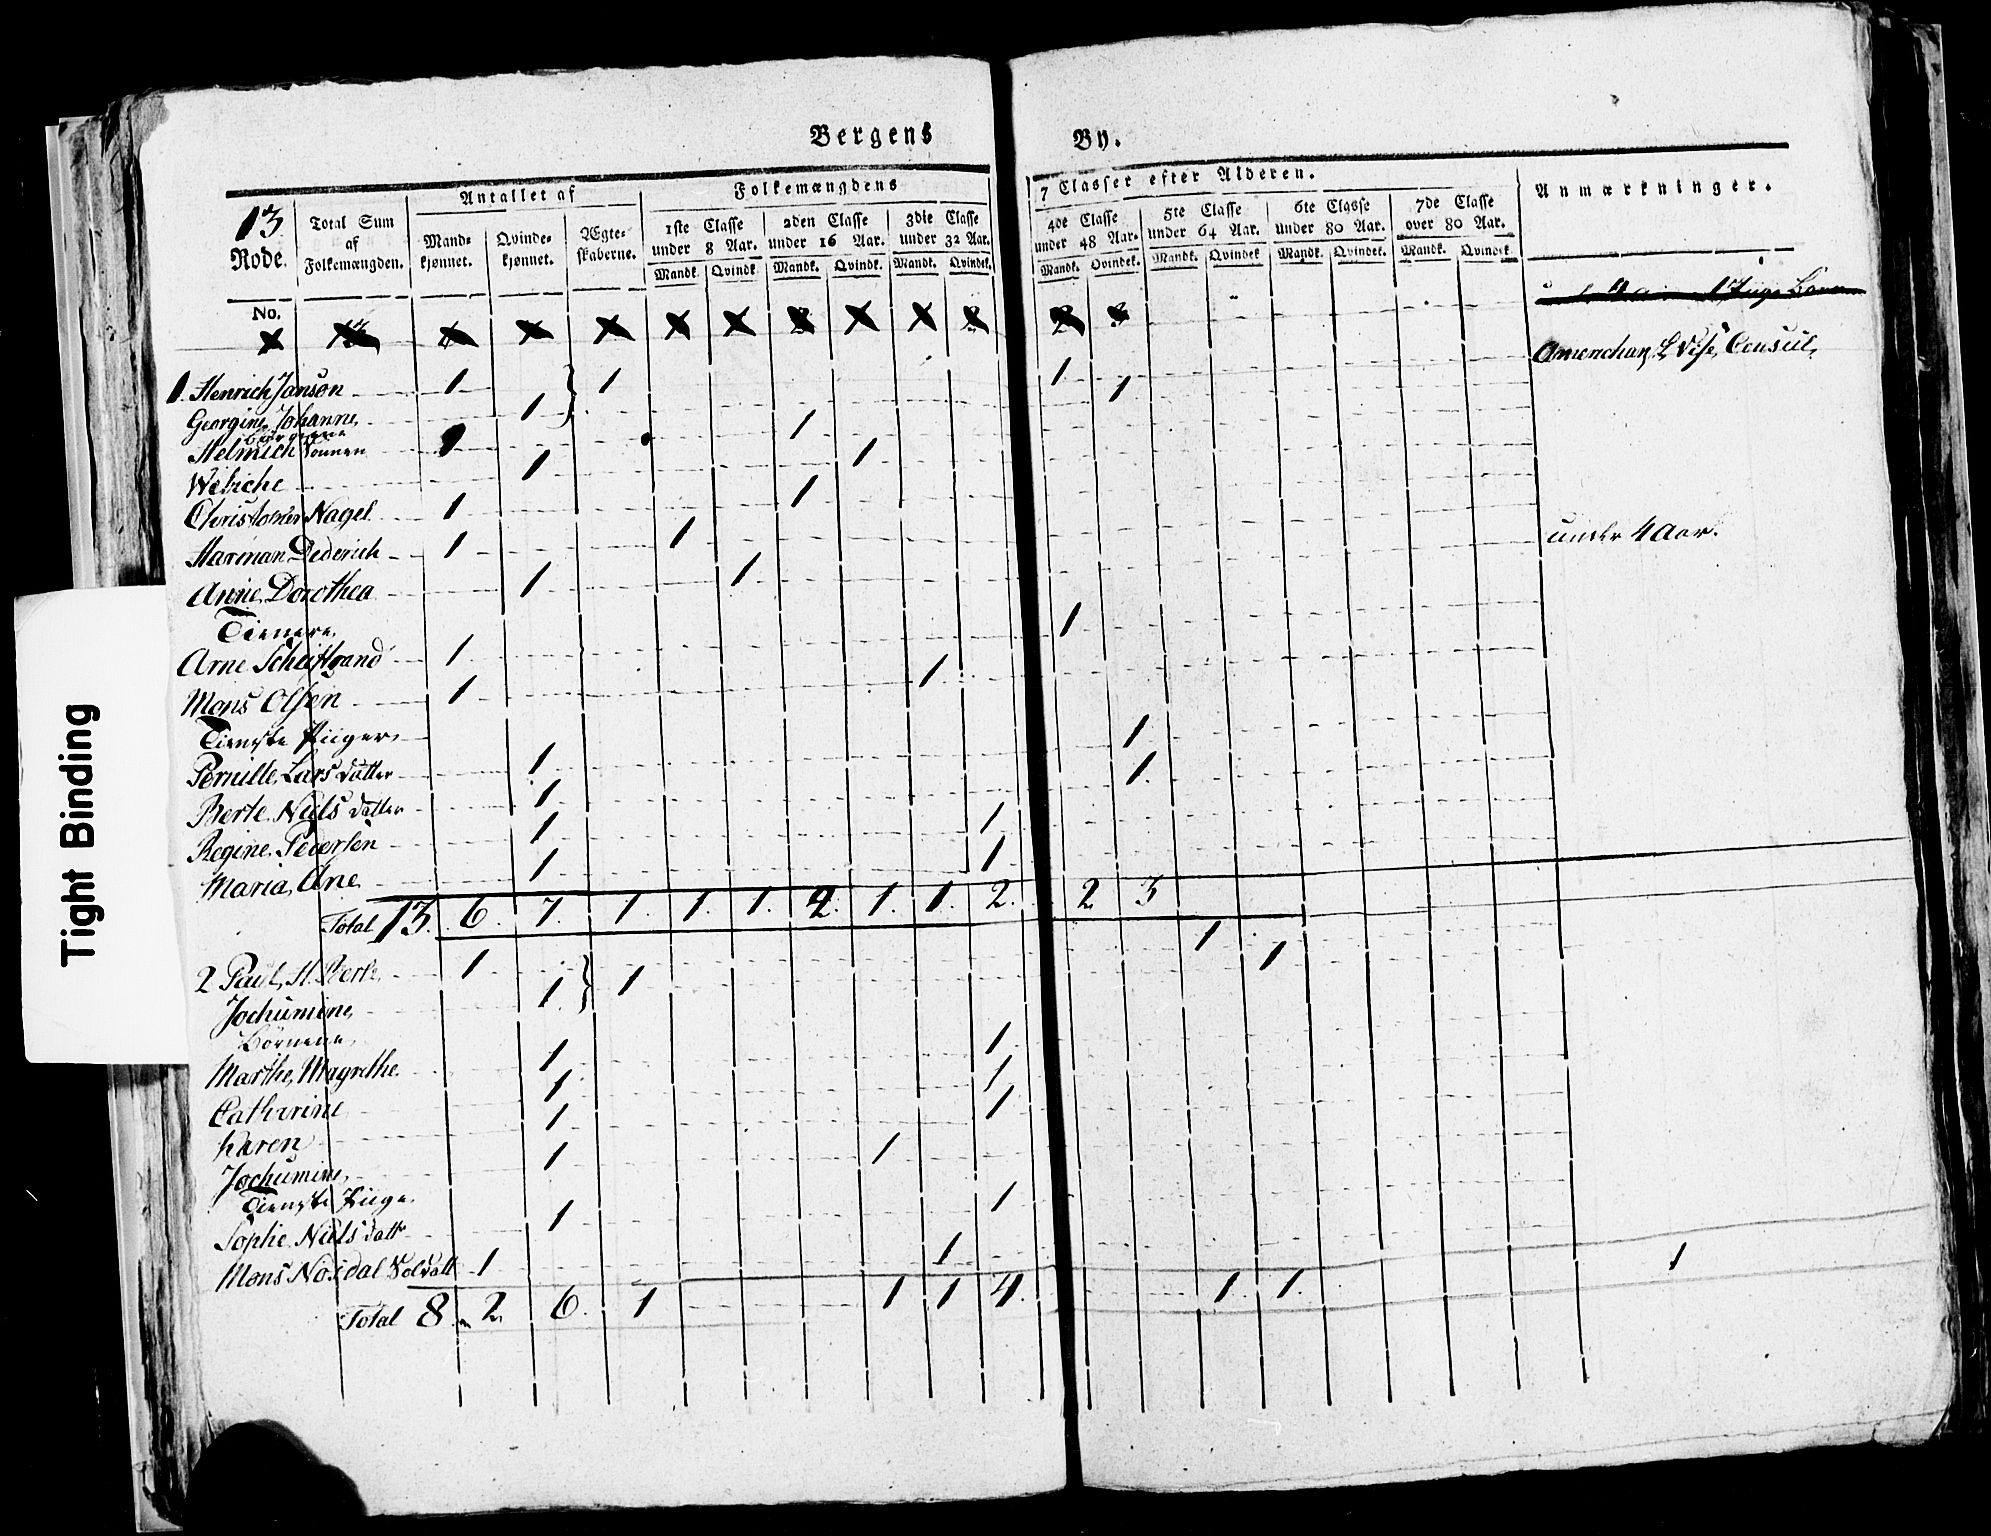 Bergens By.
13 Rode. Total Sum af Folkemængden. Antallet af Folkemængdens 7 Classer efter Alderen. Anmærkninger.
Mandkjønnet. Qvindekjønnet. Ægteskaberne. 1ste Classe under 8 Aar. 2den Classe under 16 Aar. 3die Classe under 32 Aar. 4de Classe under 48 Aar. 5te Classe under 64 Aar. 6te Classe under 80 Aar. 7de Classe over 80 Aar.
Mandk. Qvindk. Mandk. Qvindk. Mandk. Qvindek. Mandk. Qvindek. Mandk. Qvindek Mandk. Qvindek. Mandk. Qvindek.
No.
1. Henrich Janson 1 1 1 Americhan. Vise, Consul,
Georgine Johanne, 1 1
Børnene
Helmich Sonnen 1 1
Wibiche 1 1
Christopher Nagel 1 1
Harman Dederich 1 1 under 4 Aar.
Anne Dorothea 1 1
Tienere.
Arne 1 1
Mons Olsen 1 1
Tieneste Piiger
Pernille, Lars datter 1 1
Berte, Niels datter 1 1
Regine Pedersen 1 1
Maria, Ane 1 1
Total 13. 6. 7. 1. 1. 1. 2. 1. 1. 2. 2 3
2 Paul, H. 1 1 1
Jochumine, 1 1
Börnene,
Marthe, Magrethe 1 1
Catherine 1 1
Karen 1 1
Jochumine, 1 1
Tieneste Piige.
Sophie Niels datt 1 1
Mons Nordal Soldatt 1 1 1
Total 8 2 6. 1 1 1 4. 1. 1.
Tight Binding